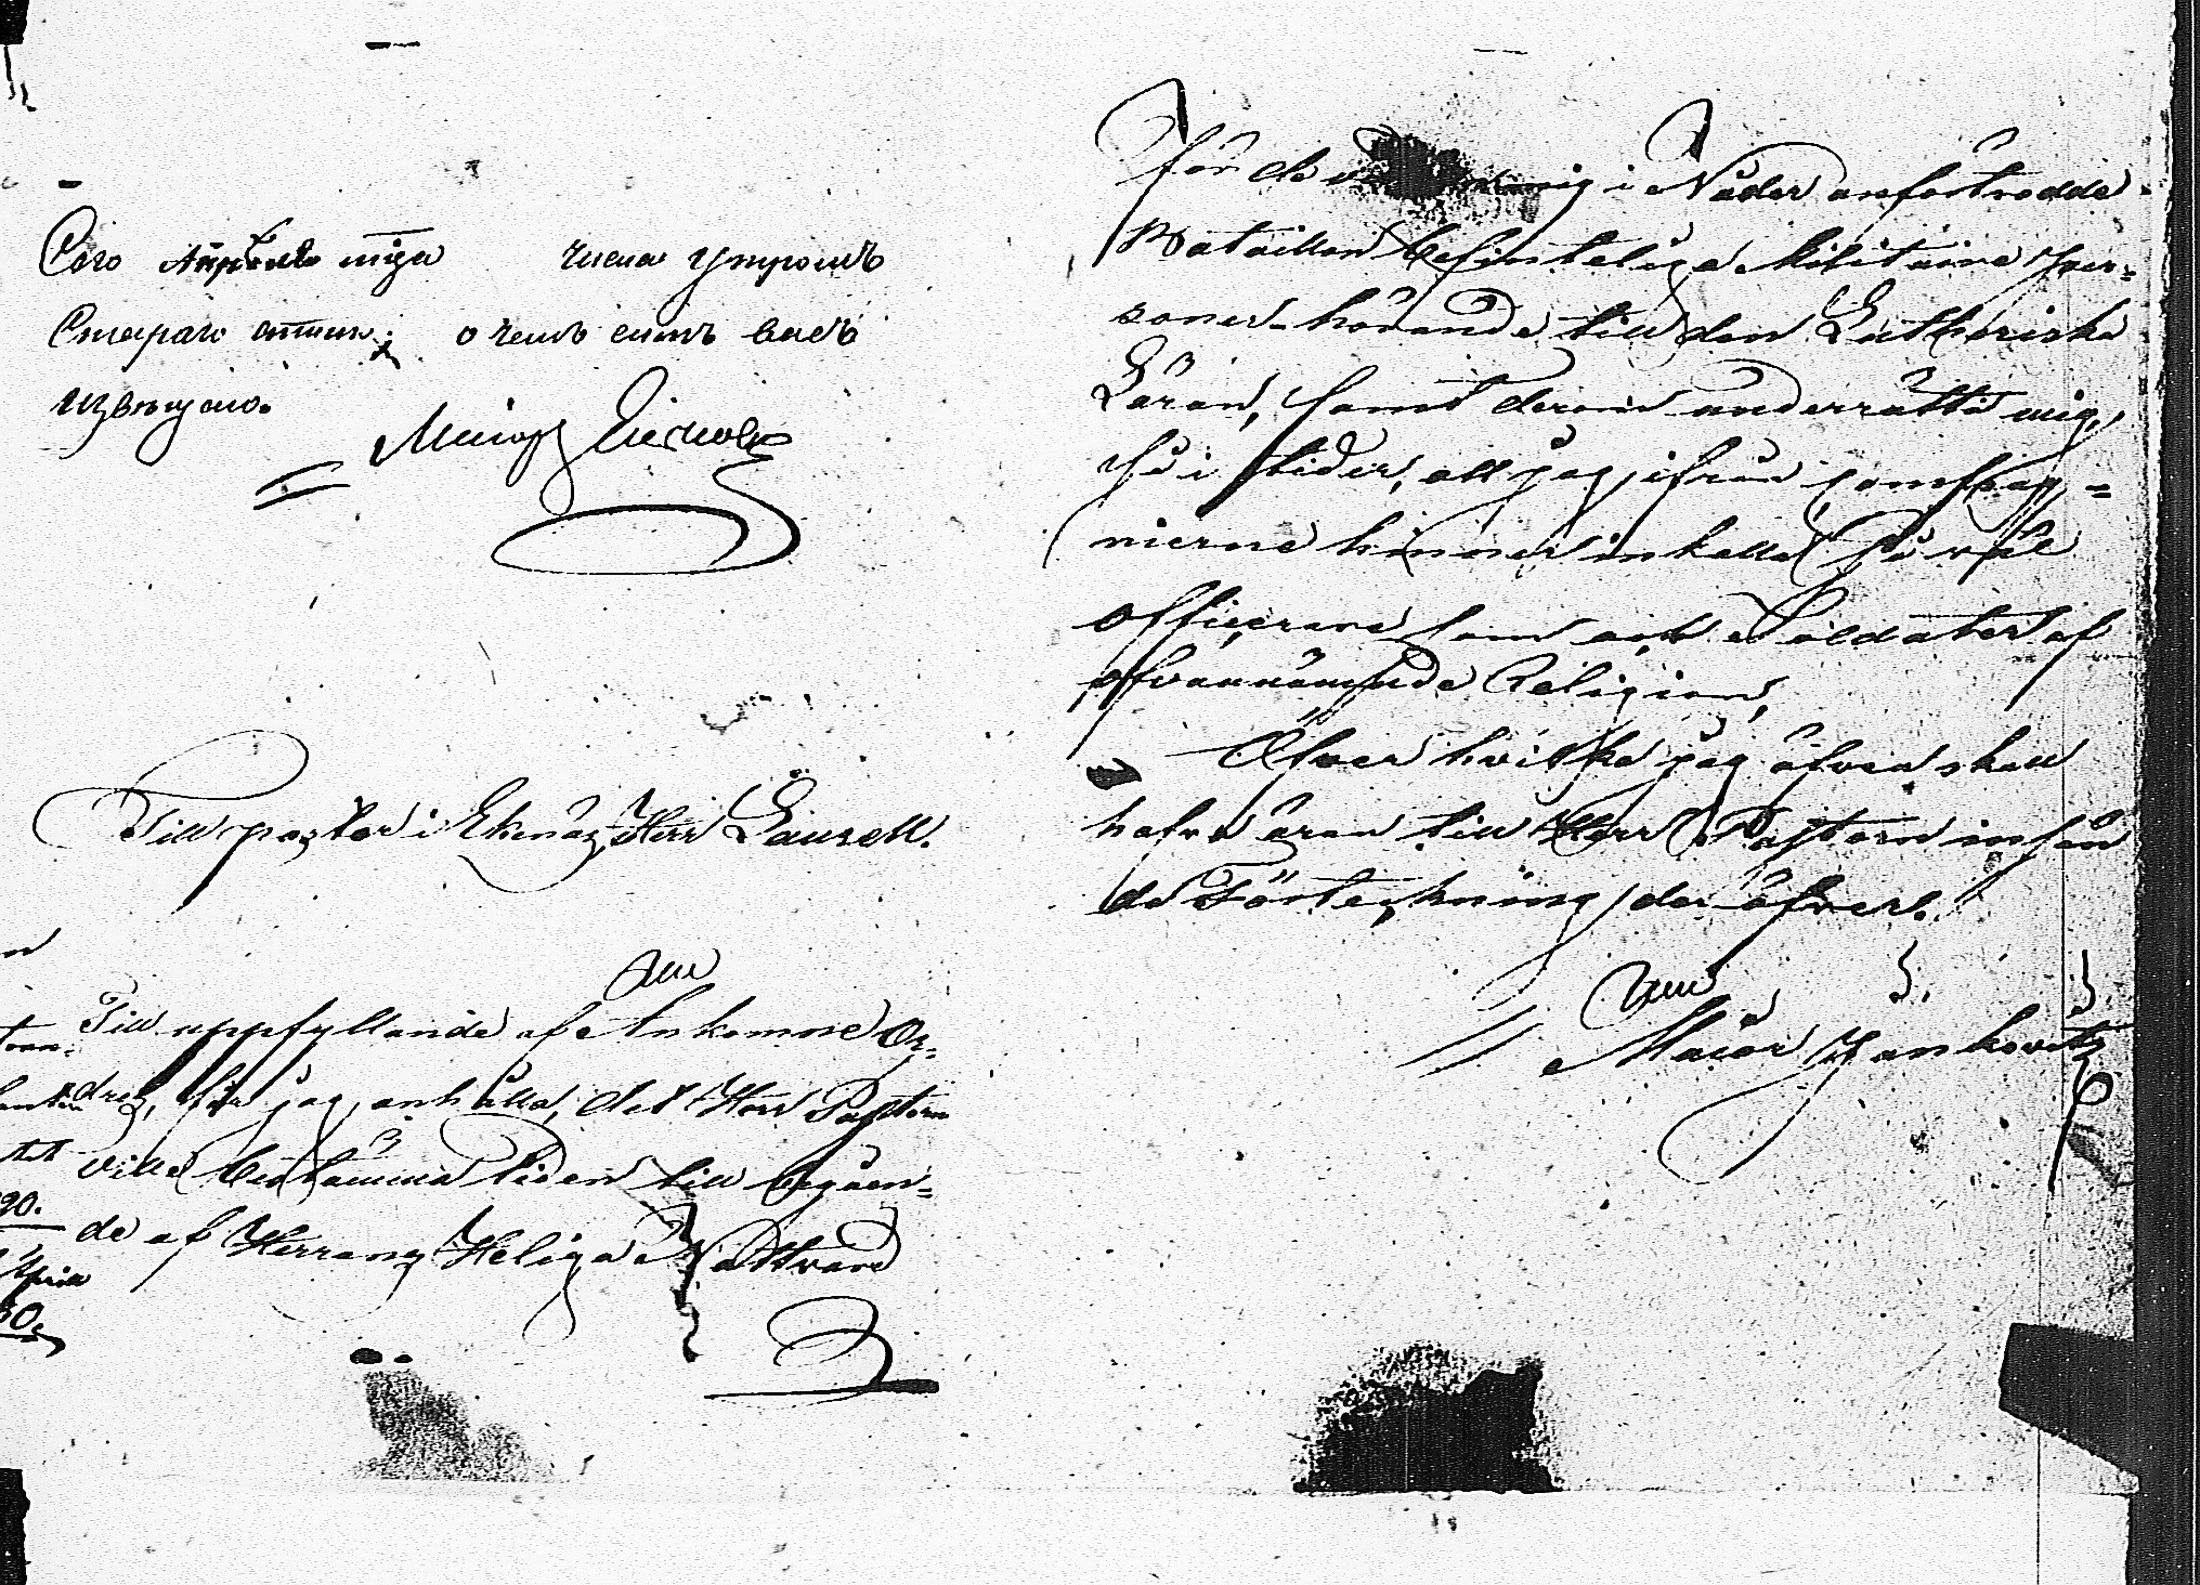 Сего Апрѣля          числа утромъ
о чемъ симъ васъ
извѣщаю.
Маиоръ
Till pastor i Ekenäs Herr Laurell.
Till uppfyllande af Ankomne Or=
dres, får jag anhålla, det Herr Pastorn
ville bestämma tiden till begåen=
de af Herrans Heliga Nattvard
för de mig i Nåder anförtrodde
Bataillon befinteliga Militaire Per=
soner hörande till den Lutheriska
Läran, samt derom underrätta mig,
så i tider, att jag ifrån Compag=
nierne hinner inkalla så väl
Officerare som och Soldater af
ofvannämnde Religion,
Öfver hvilka jag äfven skall
hafva äran till Herr Pastorn insän
da Förteckning deröfver.
Maior Jankovitz